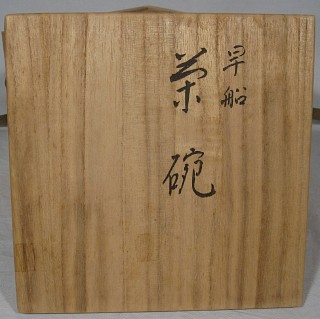 早船
茶碗